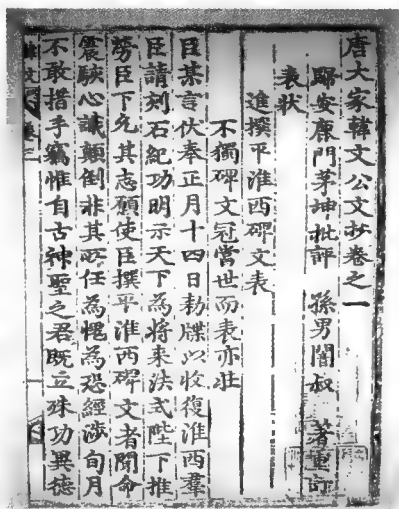 唐大家韓文公文抄卷之一
歸安鹿門茅坤批評 孫男闇叔 著重訂
表状
進撰平淮西碑文表
不獨碑文冠當世而表亦壯
臣某言伏奉正月十四日勅牒以收復淮西羣
臣請刻石紀功明示天下為將來法式陛下推
勞臣下允其志願使臣撰平淮西碑文者聞命
震駭心識顛倒非其所任為愧為恐經涉旬月
不敢措手竊惟自古神聖之君既立殊功異德
韓文